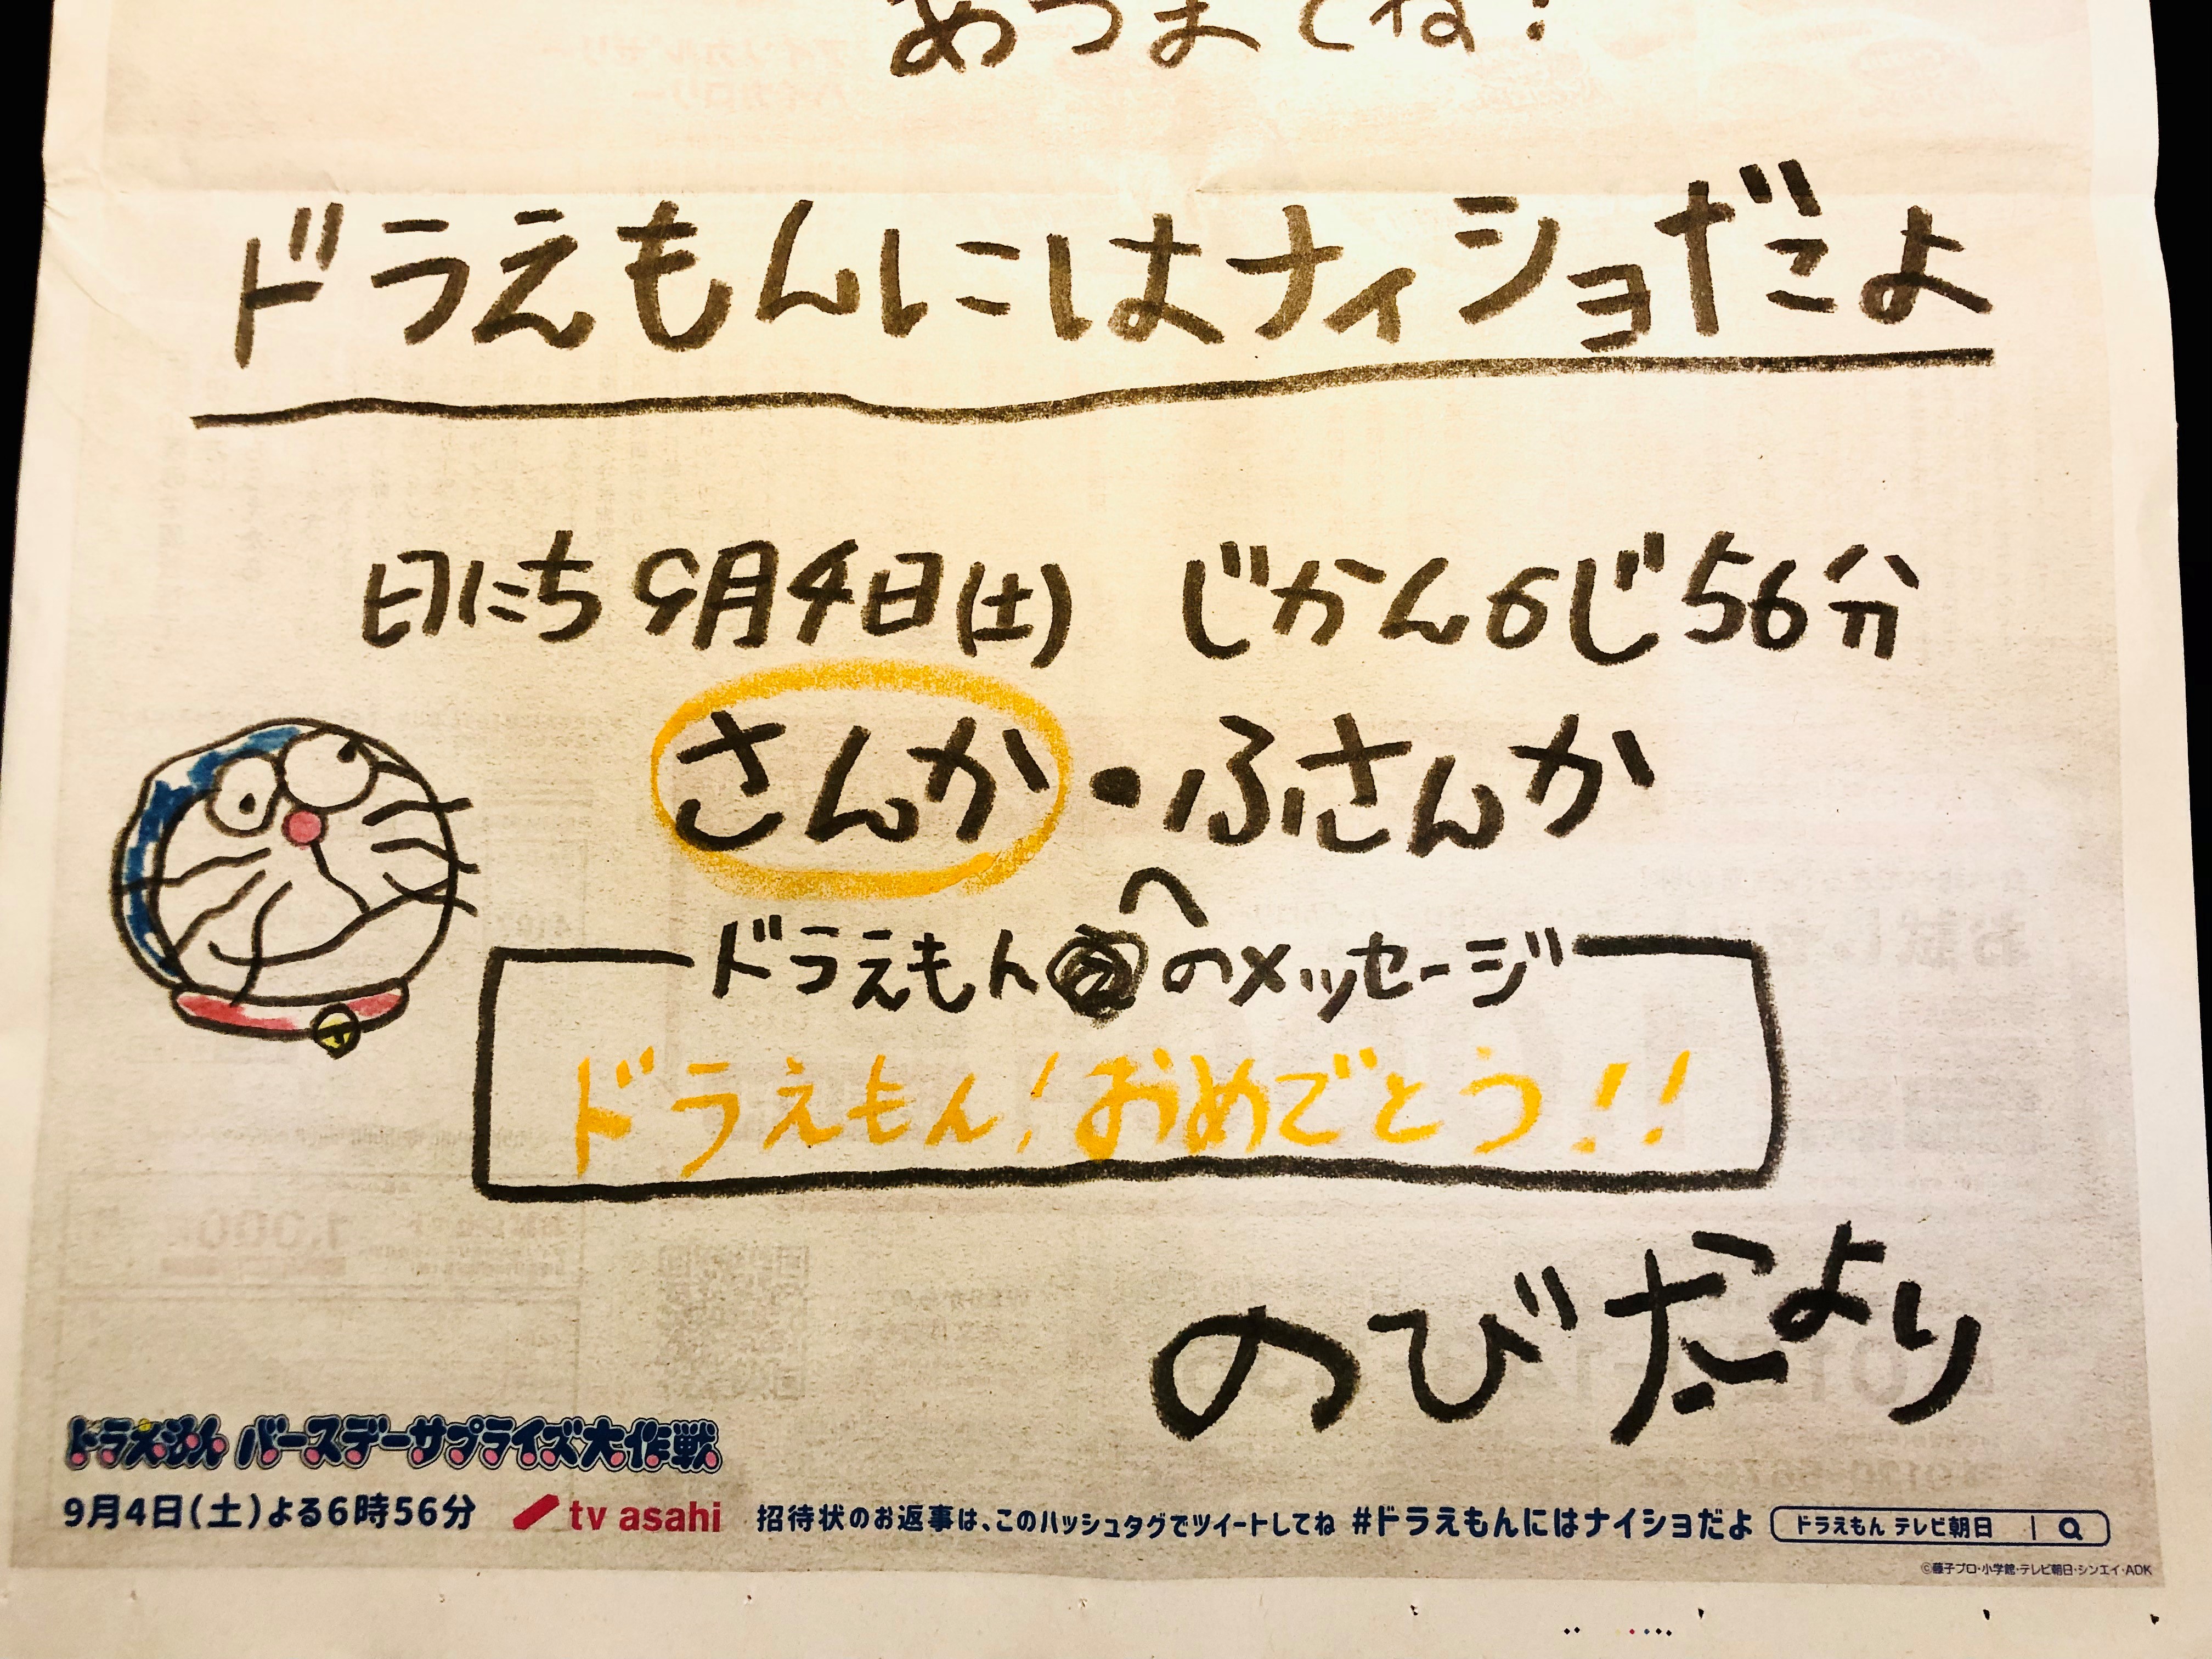 あつまてね!
ドラえもんにはナイショだよ
日にち9月4日(土) じかん6じ56分
さんか・ふさんか
ドラえもんへのメッセージ
ドラえもん!おめでとう!!
のびだより
ドラえもん バースデーサプライズ大作戦
9月4日(土)よる6時56分 tv asahi 招待状のお返事は、このハッシュタグでツイートしてね #ドラえもんにはナイショだよ ドラえもん テレビ朝日
©藤子プロ・小学館・テレビ朝日・シンエイ・ADK